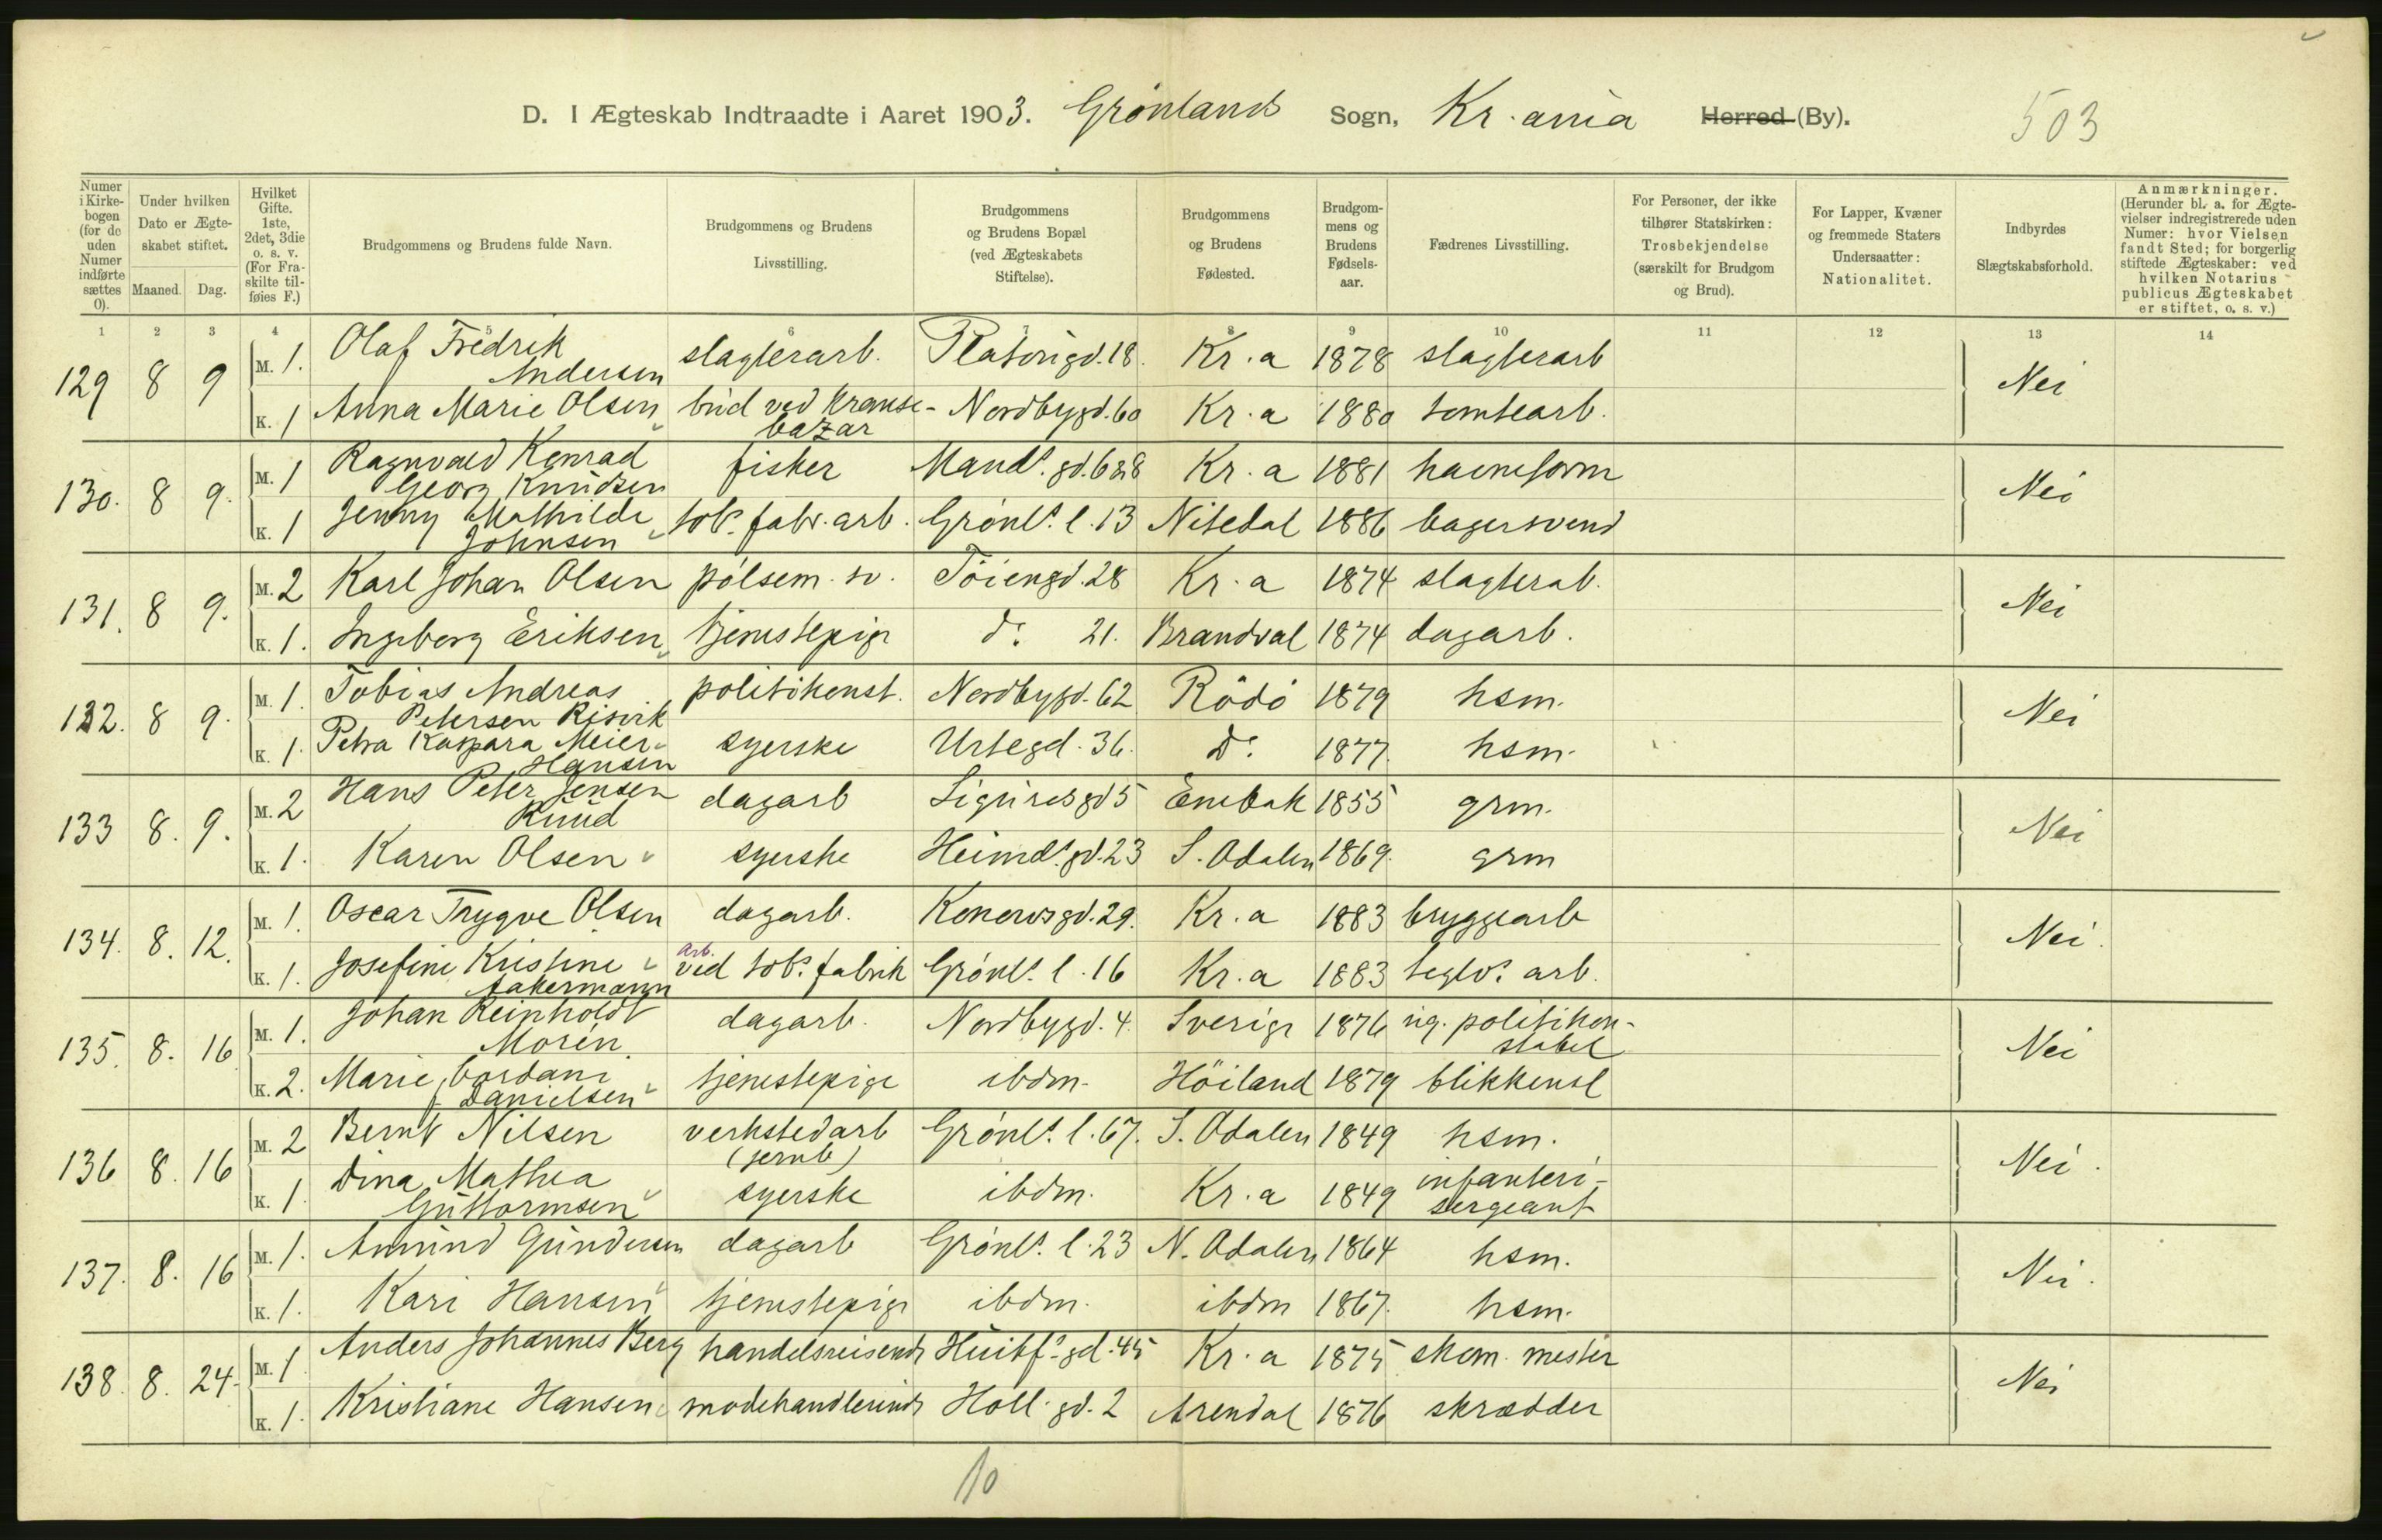 D. I Ægteskab Indtraadte i Aaret 1903. Grønlands Sogn, Kr.ania Herred (By). 503
Numer i Kirkebogen (for de uden Numer indførte sættes 0).
Under hvilken Dato er Ægteskabet stiftet.
Maaned. Dag.
Hvilket Gifte. 1ste, 2det, 3die o. s. v. (For Fraskilte tilføies F.)
Brudgommens og Brudens fulde Navn.
Brudgommens og Brudens Livsstilling.
Brudgommens og Brudens Bopæl (ved Ægteskabets Stiftelse).
Brudgommens og Brudens Fødested.
Brudgommens og Brudens Fødselsaar.
Fædrenes Livsstilling.
For Personer, der ikke tilhører Statskirken: Trosbekjendelse (særskilt for Brudgom og Brud).
For Lapper, Kvæner og fremmede Staters Undersaatter: Nationalitet.
Indbyrdes Slægtskabsforhold.
Anmærkninger. (Herunder bl. a. for Ægtevielser indregistrerede uden Numer: hvor Vielsen fandt Sted; for borgerlig stiftede Ægteskaber: ved hvilken Notarius publicus Ægteskabet er stiftet, o. s. v.)
1 2 3 4 5 6 7 8 9 10 11 12 13 14
129 8 9 M. 1. Olaf Fredrik Andersen slagterarb. Platousgd. 18. Kr.a 1878 slagterarb Nei
K. 1 Anna Marie Olsen bud ved Kranse-bazar Nordbygd. 60 Kr.a 1880 tomtearb.
130. 8 9. M. 1 Ragnvald Konrad Georg Knudsen fisker Mands. gd. 6 Kr.a 1881 Nei
K. 1 Jenny Mathilde Johnsen tobs. fabr. arb. Grønls. l. 13 Nitedal 1886 bagersvend
131. 8 9. M. 2 Karl Johan Olsen pølsem. sv. Tøiengd. 28 Kr.a 1874 slagterab. Nei
K. 1. Ingeborg Eriksen tjenestepige do. 21. Brandval 1874 dagarb.
132. 8 9. M. 1. Tobias Andreas Petersen Risvik politikonst. Nordbygd. 62 Rödö 1879 hsm. Nei
K. 1. Petra Kaspara Meier-Hansen syerske Urtegd. 36. Do. 1877. hsm.
133 8. 9. M. 2 Hans Peter Jensen Ruud dagarb Sigursgd 5 Enebak 1855 grm. Nei
K. 1. Karen Olsen syerske Heimds. gd. 23 S. Odalen 1869. grm
134. 8. 12. M. 1. Oscar Trygve Olsen dagarb. Konowsgd. 29. Kr.a 1883 bryggearb Nei.
K. 1. Josefine Kristine Aakermann arb. ved tobs. fabrik Grønls. l. 16 Kr.a 1883 teglvs. arb.
135. 8. 16 M. 1. Johan Reinholdt Morén dagarb. Nordbygd. 4. Sverige 1876 ug. politikonstabel Nei
K. 2. Marie Cordani f. Danielsen tjenestepige ibdm. Höiland 1879 blikkensl
136 8. 16 M. 2 Bernt Nilsen verkstedarb (jernb) Grønls. l. 67. S. Odalen 1849 hsm. Nei.
K. 1 Dina Mathea Guttormsen syerske ibdm. Kr.a 1849 infanteri-sergeant
137. 8. 16 M. 1. Amund Gundersen dagarb Grønls. l. 23 N. Odalen 1864 hsm. Nei.
K. 1. Kari Hansen tjenestepige ibdm. ibdm 1867. hsm.
138. 8. 24. M. 1. Anders Johannes Berg handelsreisende Huitfs. gd. 45 Kr.a 1875 skom. mester Nei
K. 1. Kristiane Hansen modehandlerinde Holl. gd. 2 Arendal 1876 skrædder
10